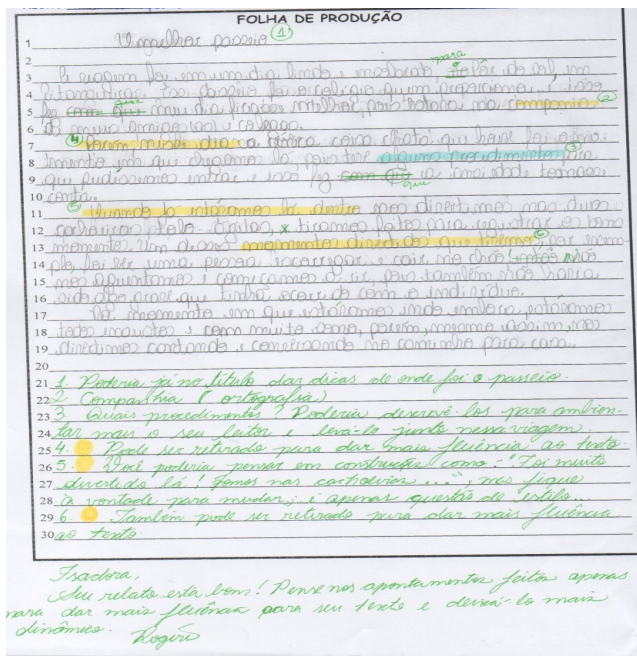 FOLHA DE PRODUÇÃO
1 O melhor passeio 1
2 para o
3 A viagem foi em um dia lindo e nublado pôr do sol, em
4 foi o colégio quem proporcionou, e isso
5 fez com que que meu dia ficasse melhor, pois estava na companhia 2
6 de meus amigos e colegas.
7 4 Porém nesse dia a única coisa chata que houve foi o
8 momento em que chegamos lá, pois teve alguns procedimentos 3 para
9 que pudéssemos entrar e isso fez com que que a ansiedade tomasse
10 conta.
11 5 Quando já estávamos lá dentro nos divertimos nas duas
12 cachoeiras, tiramos fotos para registrar os bons
13 momentos. Um desses momentos divertidos que tivemos 6, por exem-
14 plo, foi ver uma pessoa escorregar e cair no chão, então não
15 nos aguentamos e começamos a rir, pois também não havia
16 sido algo grave que tinha ocorrido com o indivíduo.
17 No momento em que estávamos indo embora, estávamos
18 todos exaustos e com muito sono, porém, mesmo assim, nos
19 divertimos cantando e conversando no caminho para casa.
20
21 1. Poderia já no título dar dicas de onde foi o passeio.
22 2. Companhia (ortografia)
23 3. Quais procedimentos? Poderia descrevê-los para ambien-
24 tar mais o seu leitor e levá-lo junto nessa viagem.
25 4. Pode ser retirado para dar mais fluência ao texto.
26 5. Você poderia pensar em construções como: "Foi muito
27 divertido lá! Fomos nas cachoeiras...", mas fique
28 à vontade para mudar; é apenas questão de estilo...
29 6. Também pode ser retirado para dar mais fluência
30 ao texto.
Isadora,
Seu relato está bom! Pense nos apontamentos feitos apenas
para dar mais fluência para seu texto e deixá-lo mais
dinâmico. Rogério